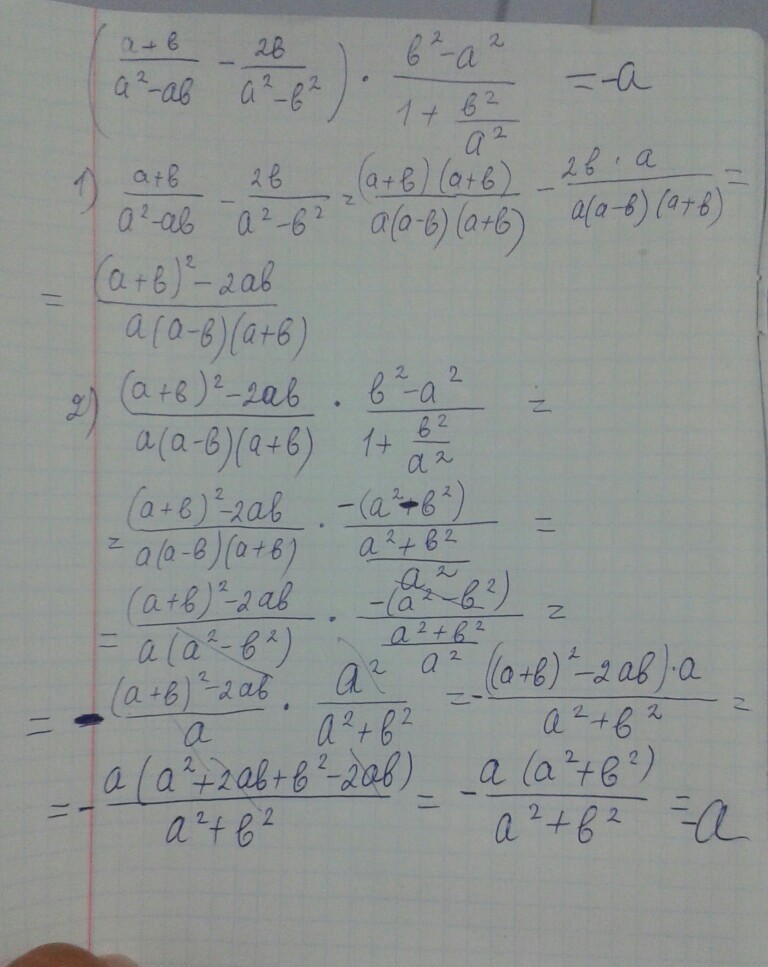 (\frac{a+b}{a^2-ab} - \frac{2b}{a^2-b^2}) \cdot \frac{b^2-a^2}{1+\frac{b^2}{a^2}} = -a
1) \frac{a+b}{a^2-ab} - \frac{2b}{a^2-b^2} = \frac{(a+b)(a+b)}{a(a-b)(a+b)} - \frac{2b \cdot a}{a(a-b)(a+b)} =
= \frac{(a+b)^2-2ab}{a(a-b)(a+b)}
2) \frac{(a+b)^2-2ab}{a(a-b)(a+b)} \cdot \frac{b^2-a^2}{1+\frac{b^2}{a^2}} =
= \frac{(a+b)^2-2ab}{a(a-b)(a+b)} \cdot \frac{-(a^2-b^2)}{\frac{a^2+b^2}{a^2}} =
= \frac{(a+b)^2-2ab}{a(a^2-b^2)} \cdot \frac{-(a^2-b^2)}{\frac{a^2+b^2}{a^2}} =
= -\frac{(a+b)^2-2ab}{a} \cdot \frac{a^2}{a^2+b^2} = -\frac{((a+b)^2-2ab) \cdot a}{a^2+b^2} =
= -\frac{a(a^2+2ab+b^2-2ab)}{a^2+b^2} = -\frac{a(a^2+b^2)}{a^2+b^2} = -a